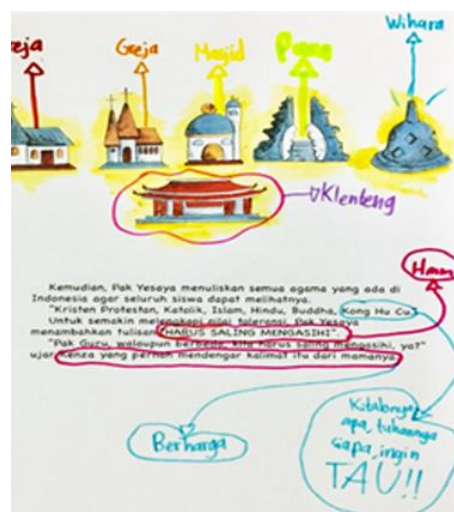 Wihara
eja
Greja
Masjid
Pura
Klenteng
Hmm
Kemudian, Pak Yesaya menuliskan semua agama yang ada di
Indonesia agar seluruh siswa dapat melihatnya.
"Kristen Protestan, Katolik, Islam, Hindu, Buddha, Kong Hu Cu."
Untuk semakin melengkapi nilai toleransi, Pak Yesaya
menambahkan tulisan "HARUS SALING MENGASIHI".
"Pak Guru, walaupun berbeda, kita harus saling mengasihi, ya?"
ujar Kenza yang pernah mendengar kalimat itu dari mamanya.
Berharga
Kitabnya
apa, tuhannya
siapa, ingin
TAU!!